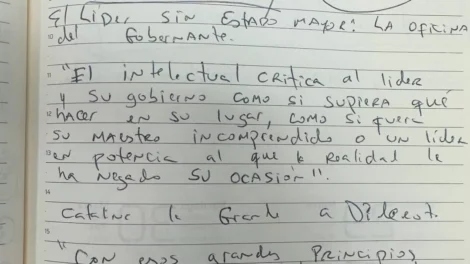 El Líder sin Estado mayor: LA oficina
del Gobernante.
"El intelectual critica al lider
y su gobierno como si supiera qué
"hacer en su lugar, como si fuera
su maestro incomprendido o un lider
"en potencia al que la Realidad le
ha negado su ocasión".
"
Catalina la Grande a Diderot.
"
"Con esos grandes Principios,